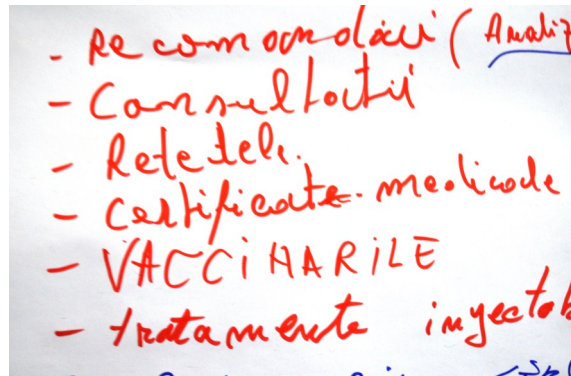 - Recomandări (Analiz
- Consultatii
- Retetele.
- Certificate medicale
- VACCiNARiLE
- tratamente injectab